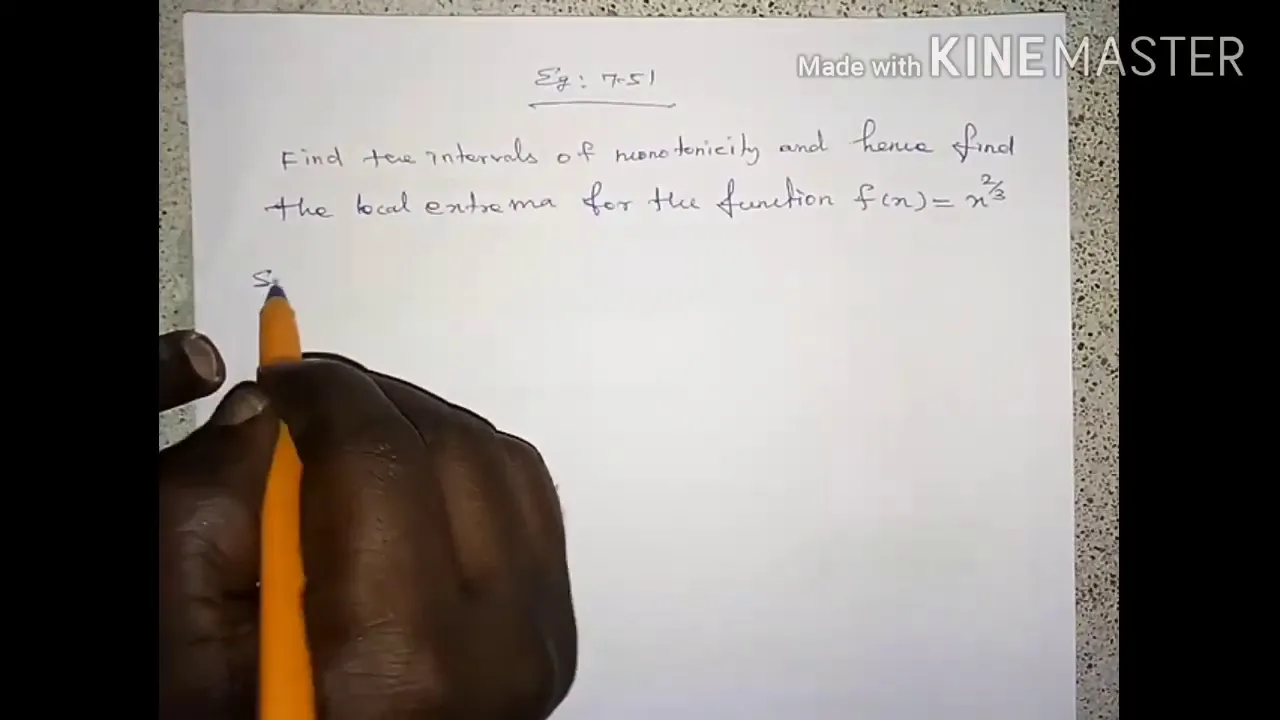 Made with KINEMASTER
Eg: 7.51
Find the intervals of monotonicity and hence find
the local extrema for the function f(x) = x^2/3
S